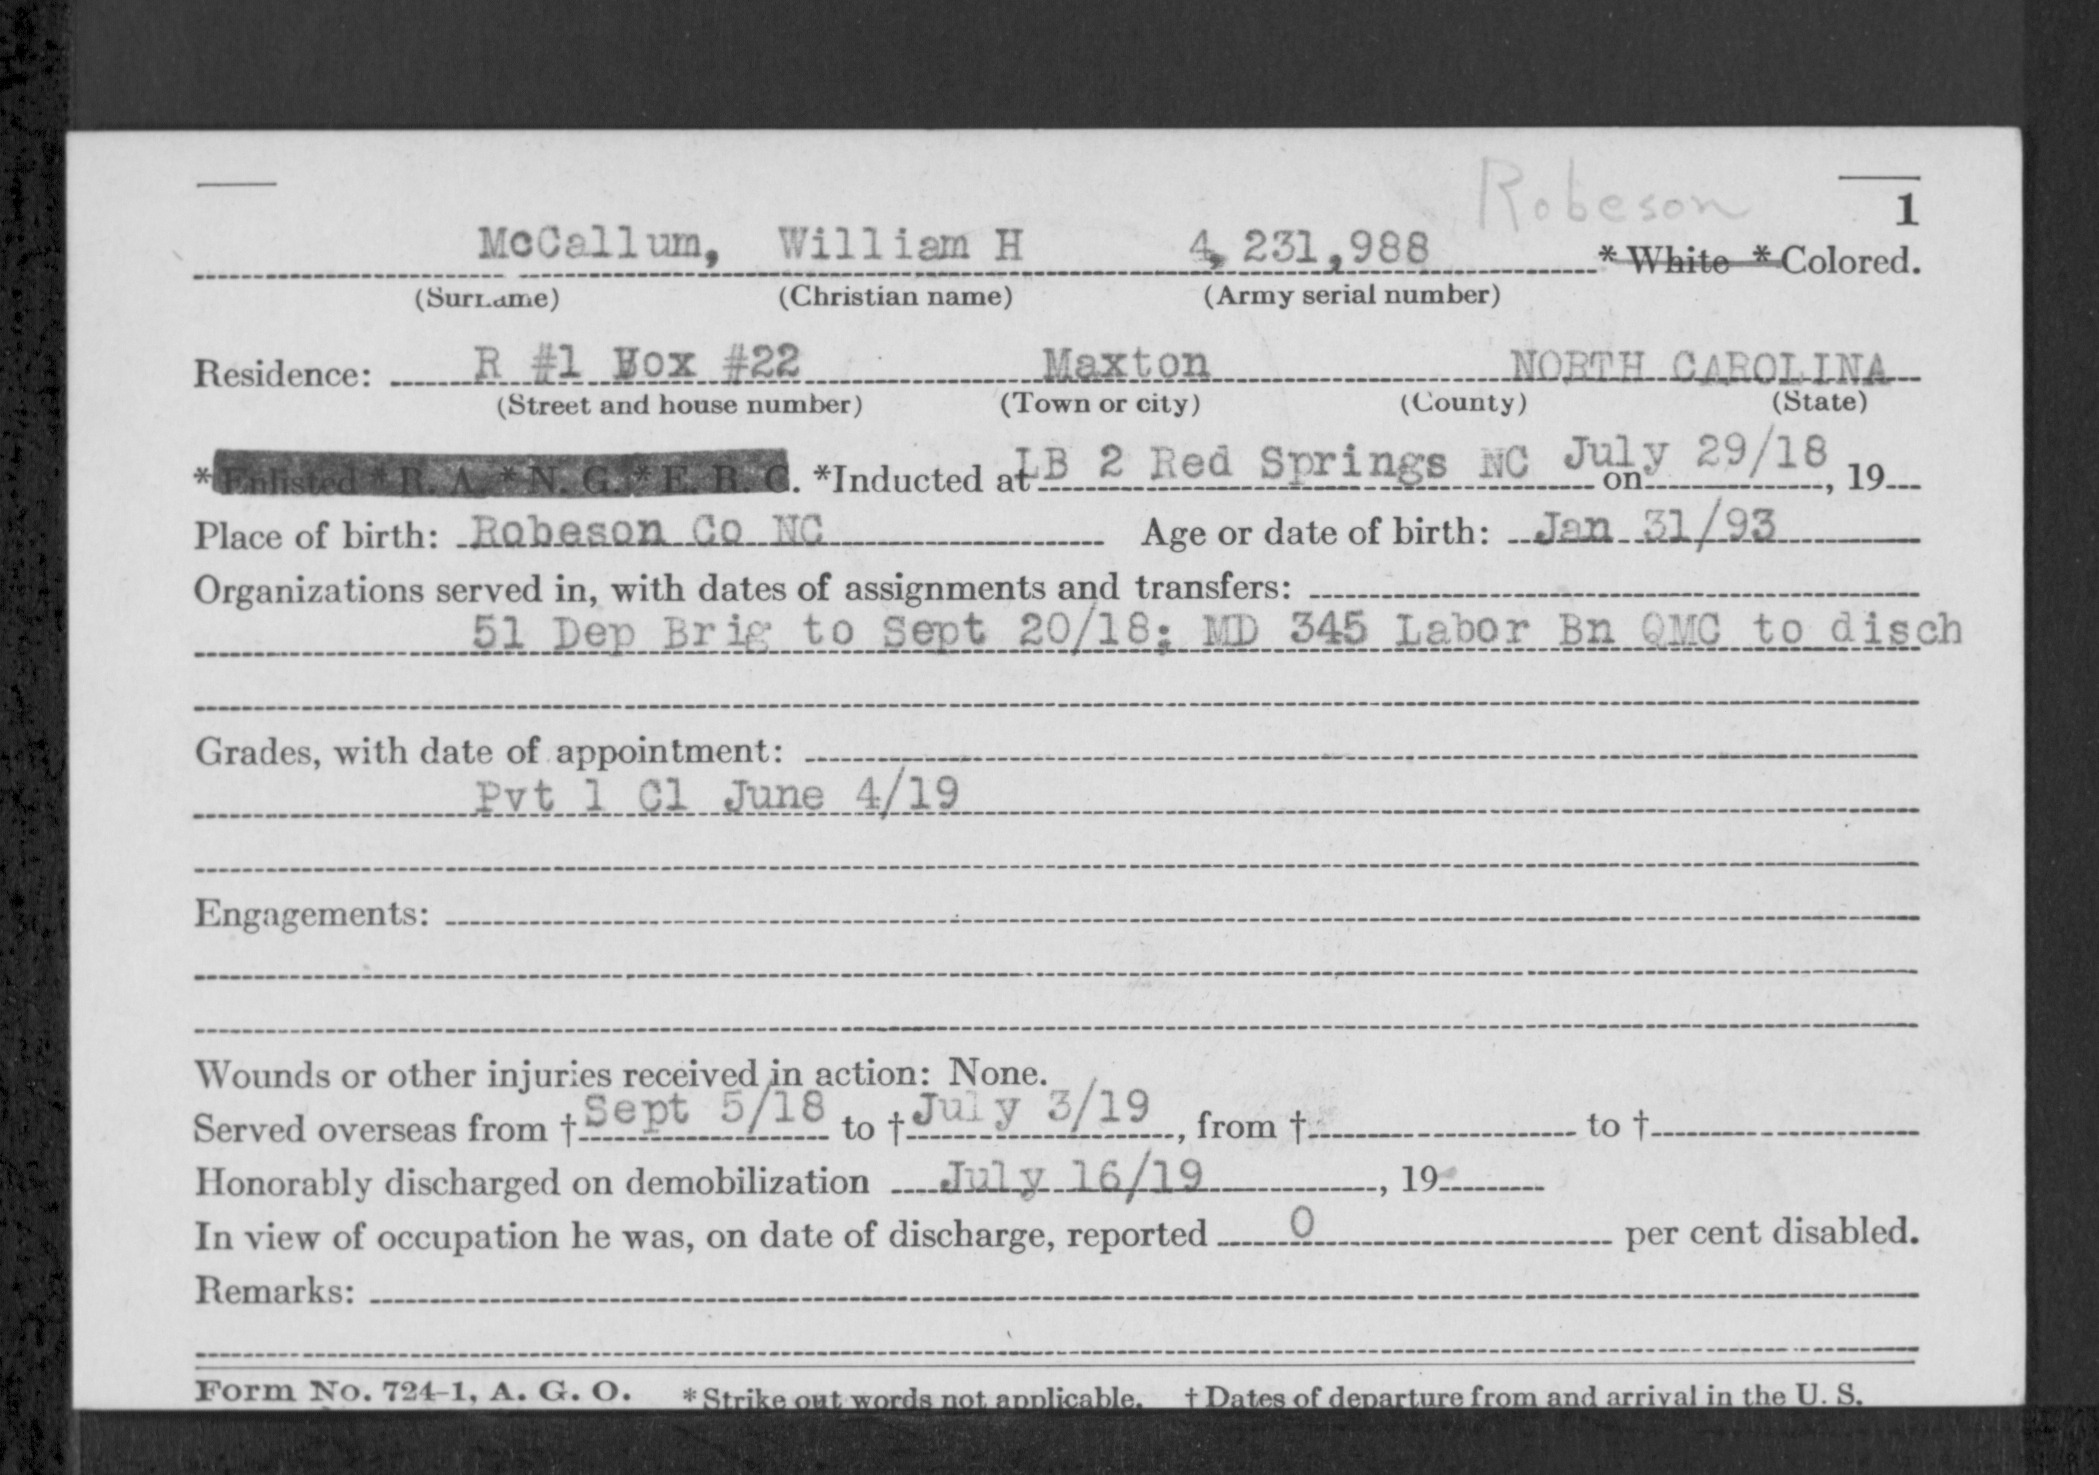 Robeson
1
McCallum, William H 4,231,988 * White * Colored.
(Surname) (Christian name) (Army serial number)
R #1 Box #22 Maxton NORTH CAROLINA
Residence:
(Street and house number) (Town or city) (County) (State)
LB 2 Red Springs NC July 29/18
* Enlisted * R. A. * N. G. * E. R. C. *Inducted at on , 19
Place of birth: Robeson Co NC Age or date of birth: Jan 31/93
Organizations served in, with dates of assignments and transfers:
51 Dep Brig to Sept 20/18; MD 345 Labor Bn QMC to disch
Grades, with date of appointment:
Pvt 1 Cl June 4/19
Engagements:
Wounds or other injuries received in action: None.
Served overseas from † Sept 5/18 to † July 3/19, from † to †
Honorably discharged on demobilization July 16/19, 19
In view of occupation he was, on date of discharge, reported 0 per cent disabled.
Remarks:
Form No. 724-1, A. G. O. * Strike out words not applicable. † Dates of departure from and arrival in the U. S.